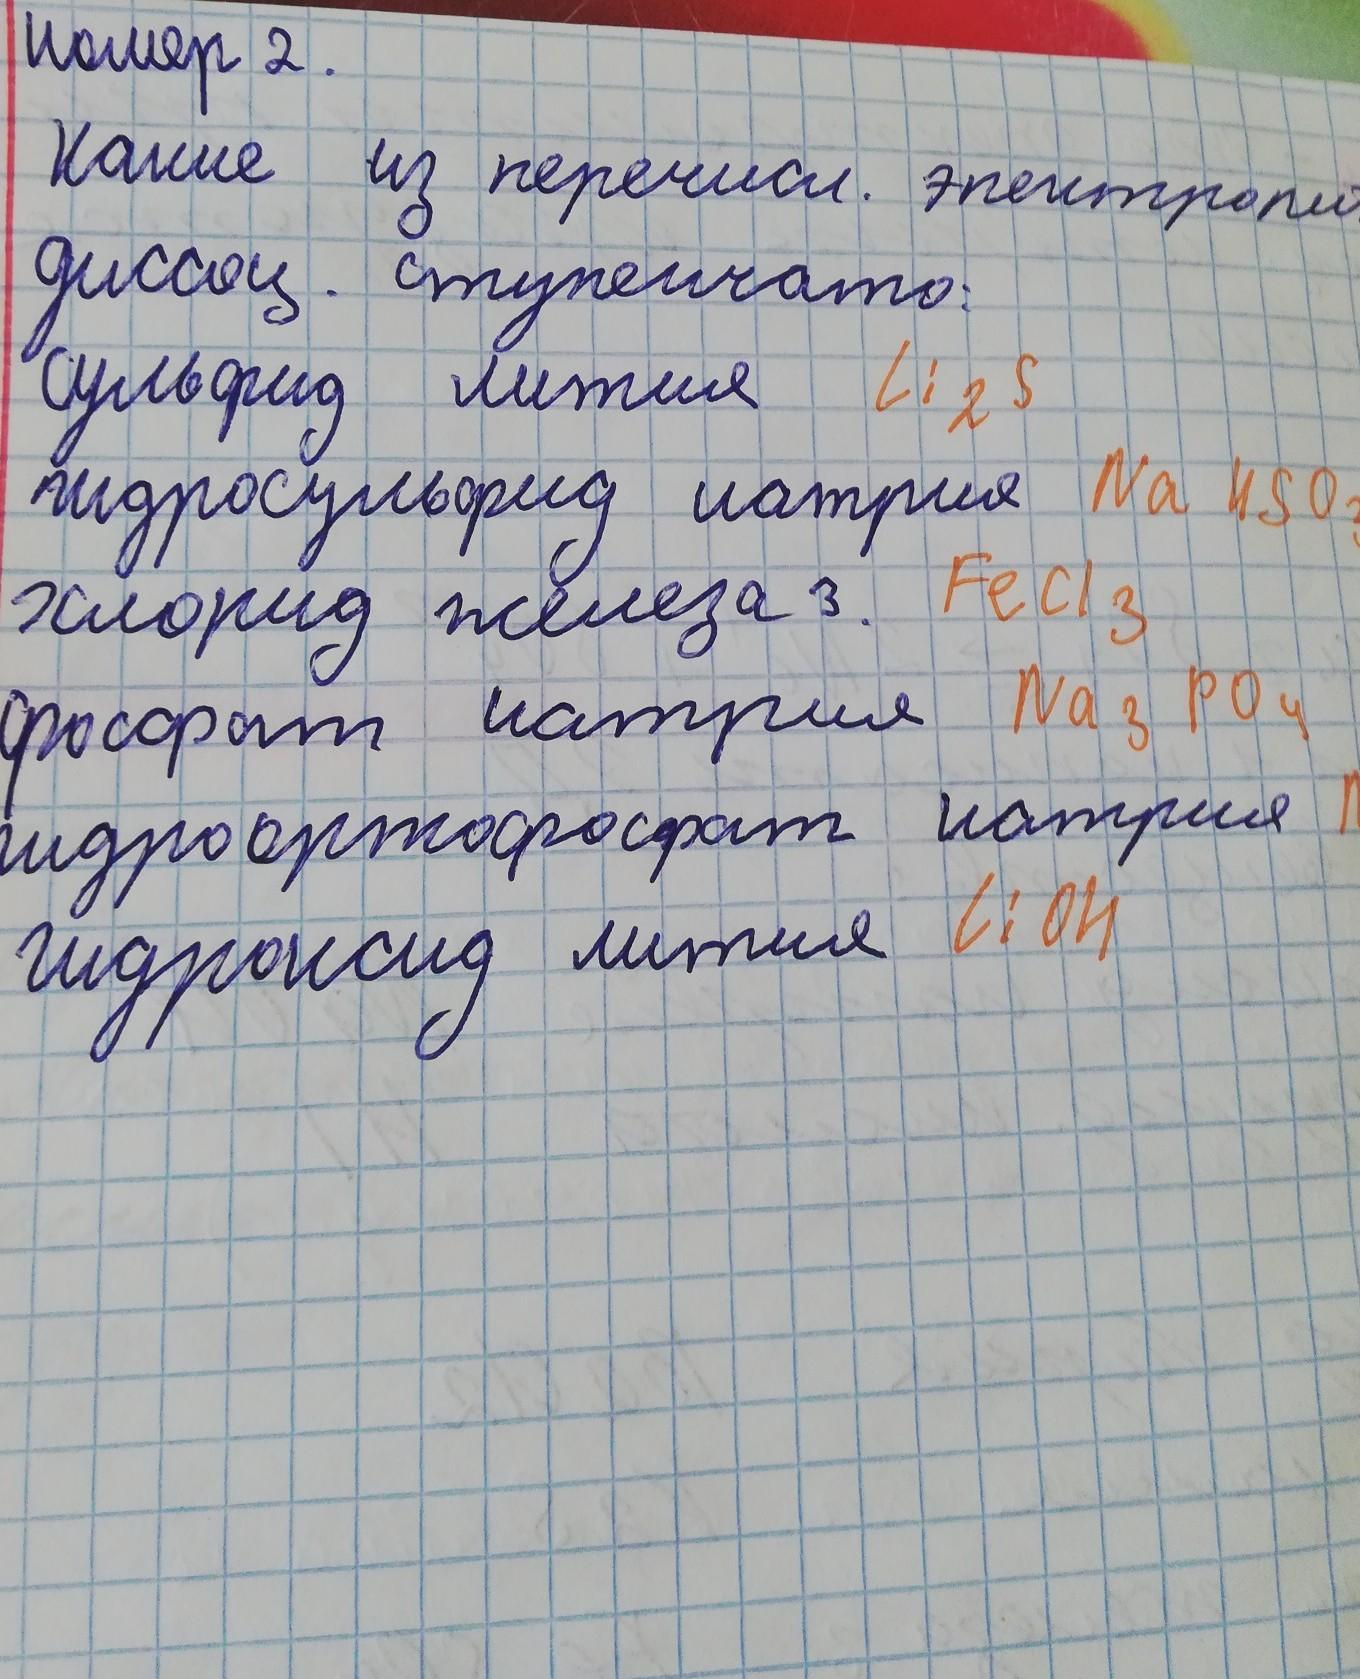 Номер 2.
Какие из перечисл. электролит
диссоц. ступенчато:
сульфид лития Li2S
гидросульфид натрия NaHSO3
хлорид железа 3. FeCl3
фосфат натрия Na3PO4
гидроортофосфат натрия N
гидроксид лития LiOH